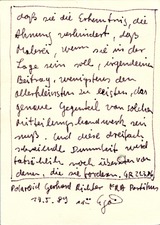 daß sie die Erkenntnis, die
Ahnung verhindert, daß
Malerei, wenn sie in der
Lage sein soll, irgendeinen
Beitrag, wenigstens den
allerkleinsten zu leisten, das
genaue Gegenteil von solchem
Mitteilungshandwerk sein
muß. Und diese dreifach
schreiende Dummheit wird
tatsächlich noch von
denen, die sie fordern.
Polaroid Gerhard Richter
89